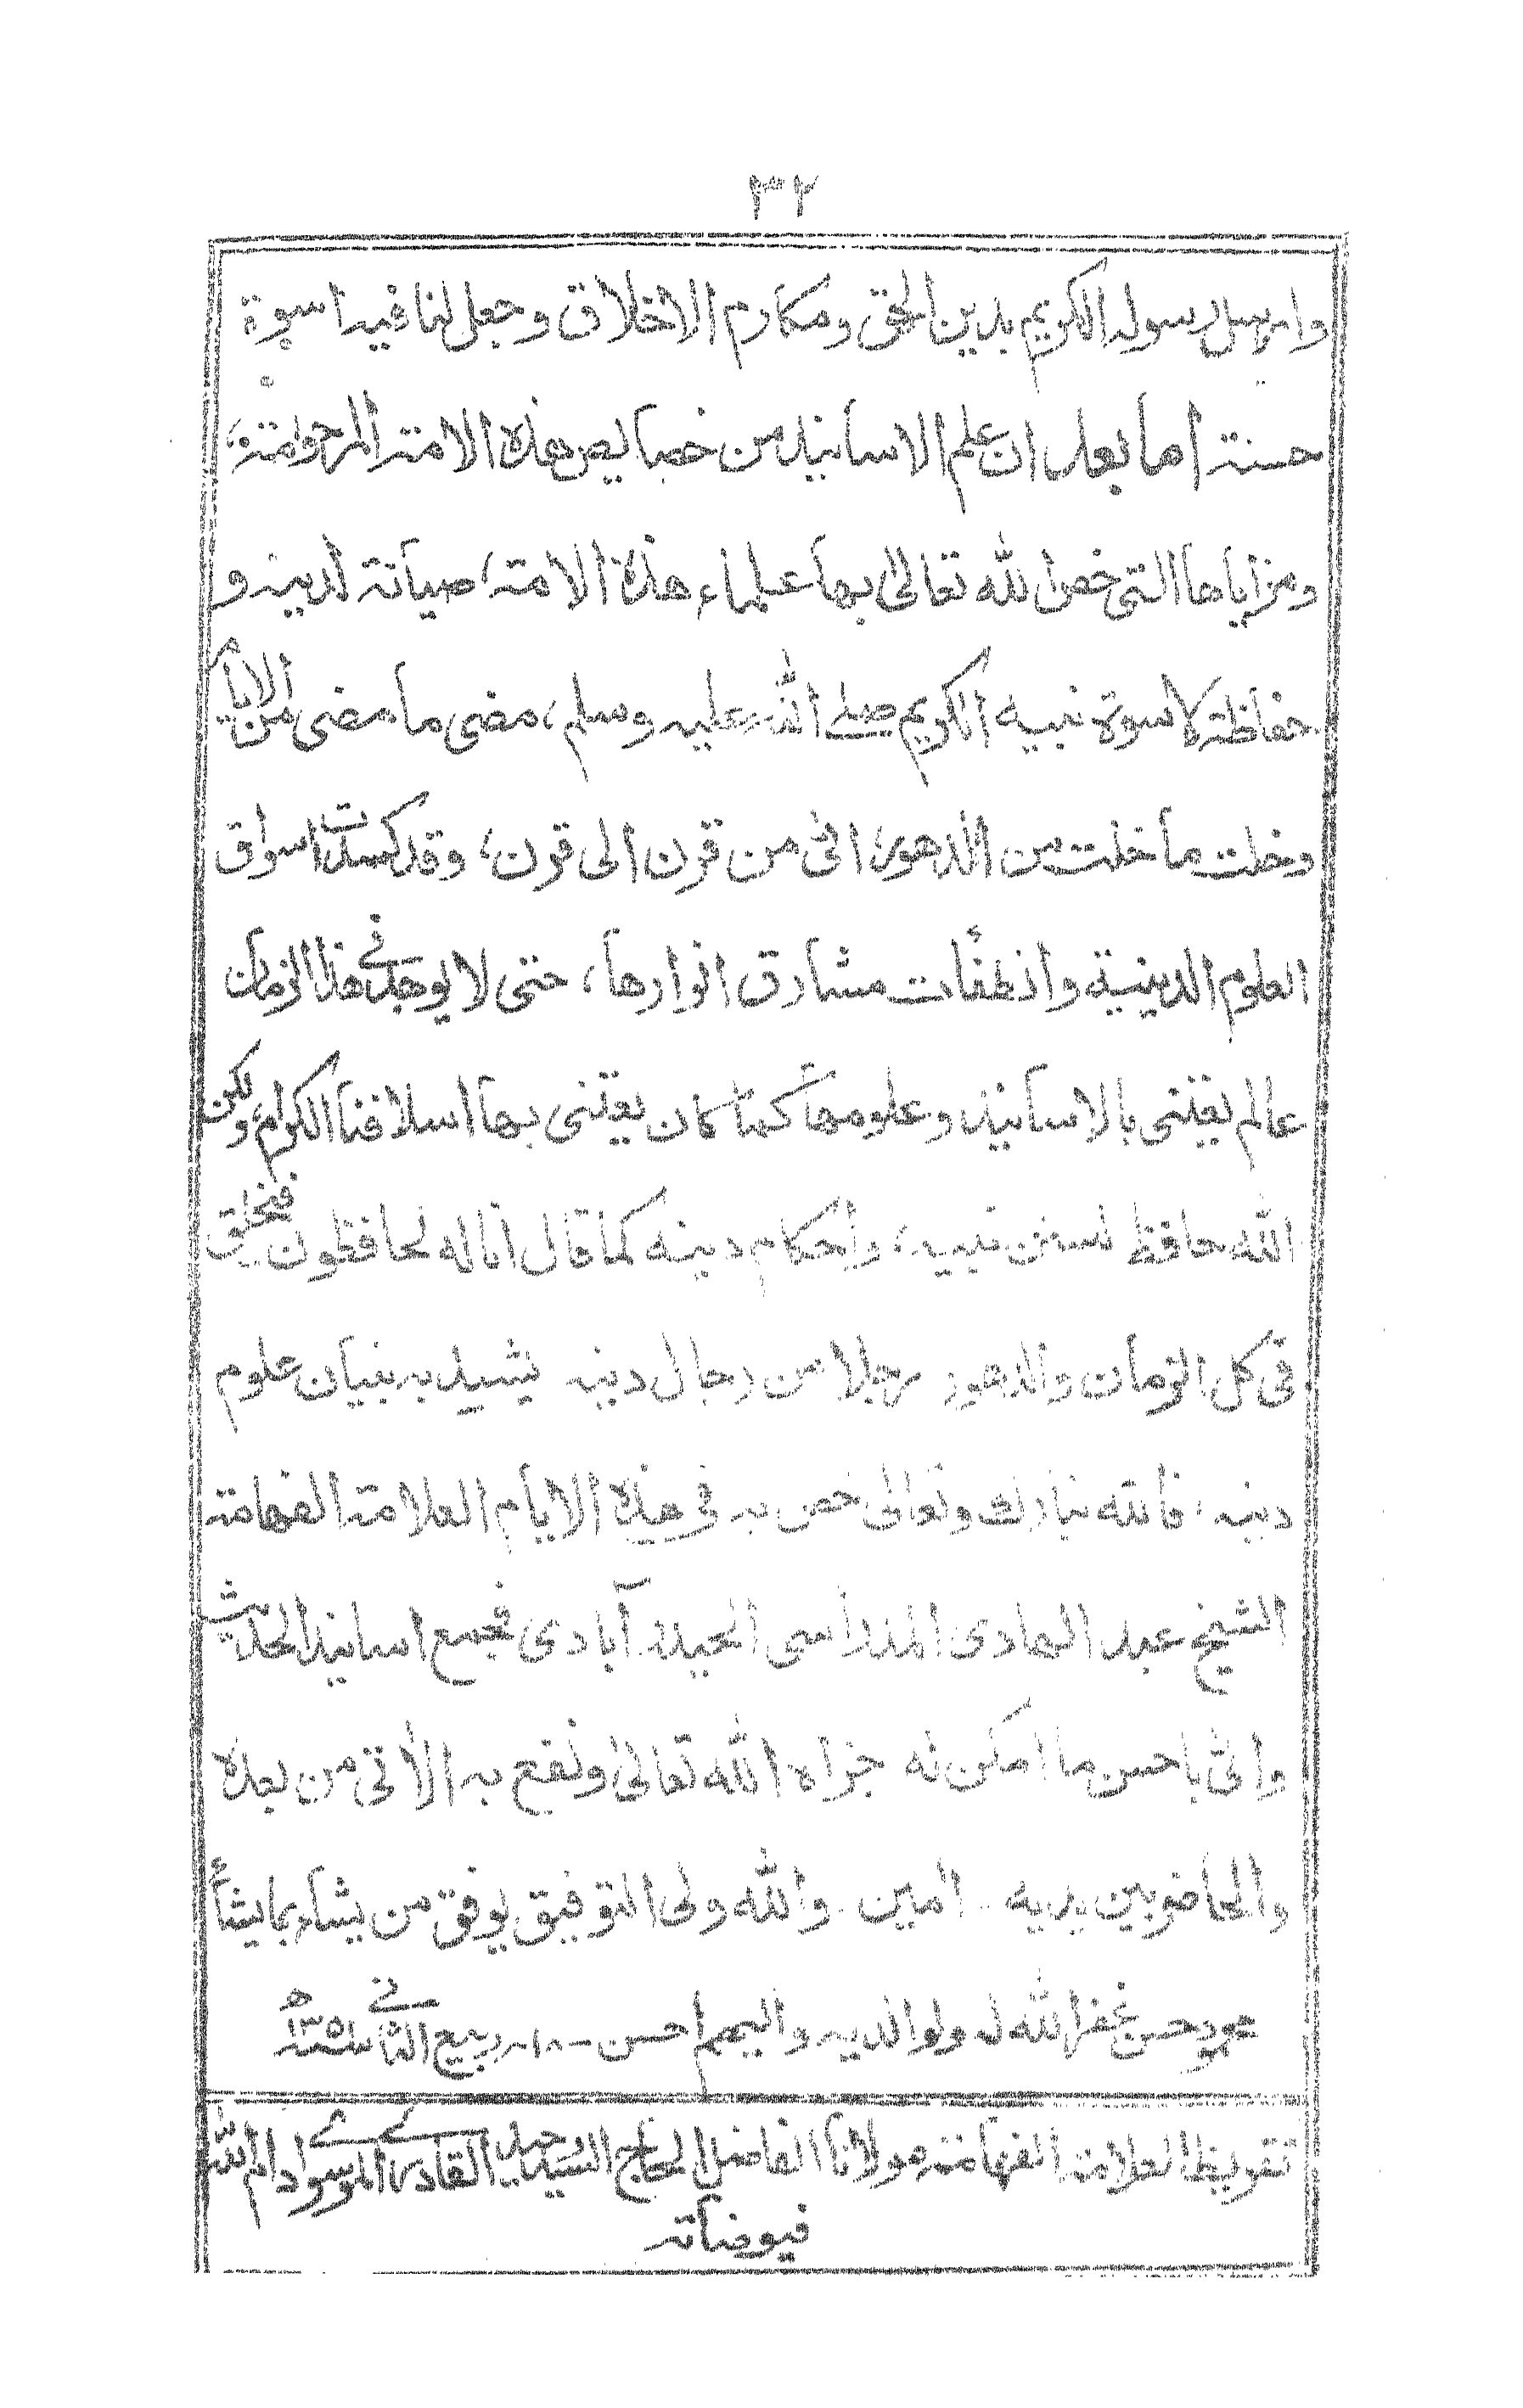 ٣٢
وارسل رسوله الكريم بدين الحق ومكارم الاخلاق وجعل لنا فيه اسوة
حسنة اما بعد ان علم الاسانيد من خصايص هذه الامة المرحومة،
ومزاياها التى خص الله تعالىٰ بها علماء هذه الامة، صيانة لدينه و
حفاظة لاسوة نبيه الكريم صلے الله عليه وسلم، مضى ما مضى من الايام
وخلت ما خلت من الدهور، اتى من قرن الى قرن، وقد كسدت اسواق
العلوم الدينية وانطفأت مشارق انوارها، حتى لا يوجد فے هذا الزمان
عالم يعتنى بالاسانيد وعلومها كما كان يعتنى بها اسلافنا الكرام، ولكن
الله حافظ لسنن نبيه، واحكام دينه كما قال انا له لحافظون فيخلق
فى كل الزمان والدهور رجلا من رجال دينه يشيد به بنيان علوم
دينه، فالله تبارك وتعالى خص به فى هذه الايام العلامة الفهامة
الشيخ عبد الهادى المدراسى الحيدر آبادى فجمع اسانيد الحديث
واتى باحسن ما امكن له جزاه الله تعالىٰ ونفع به الآتى من بعده
والحاضر بين يديه ۔ امين ۔ والله ولى التوفيق يوفق من يشاء بما يشأ
محمود حسن غفر الله له ولوالديه واليهم احسن ۔ ١٨۔ ربيع الثانے سنة ١٣٥١ھ
تقريظ العلامة الفهامة مولانا الفاضل الحاج السيد جميل القادرى الموسوے دام الله
فيوضاته